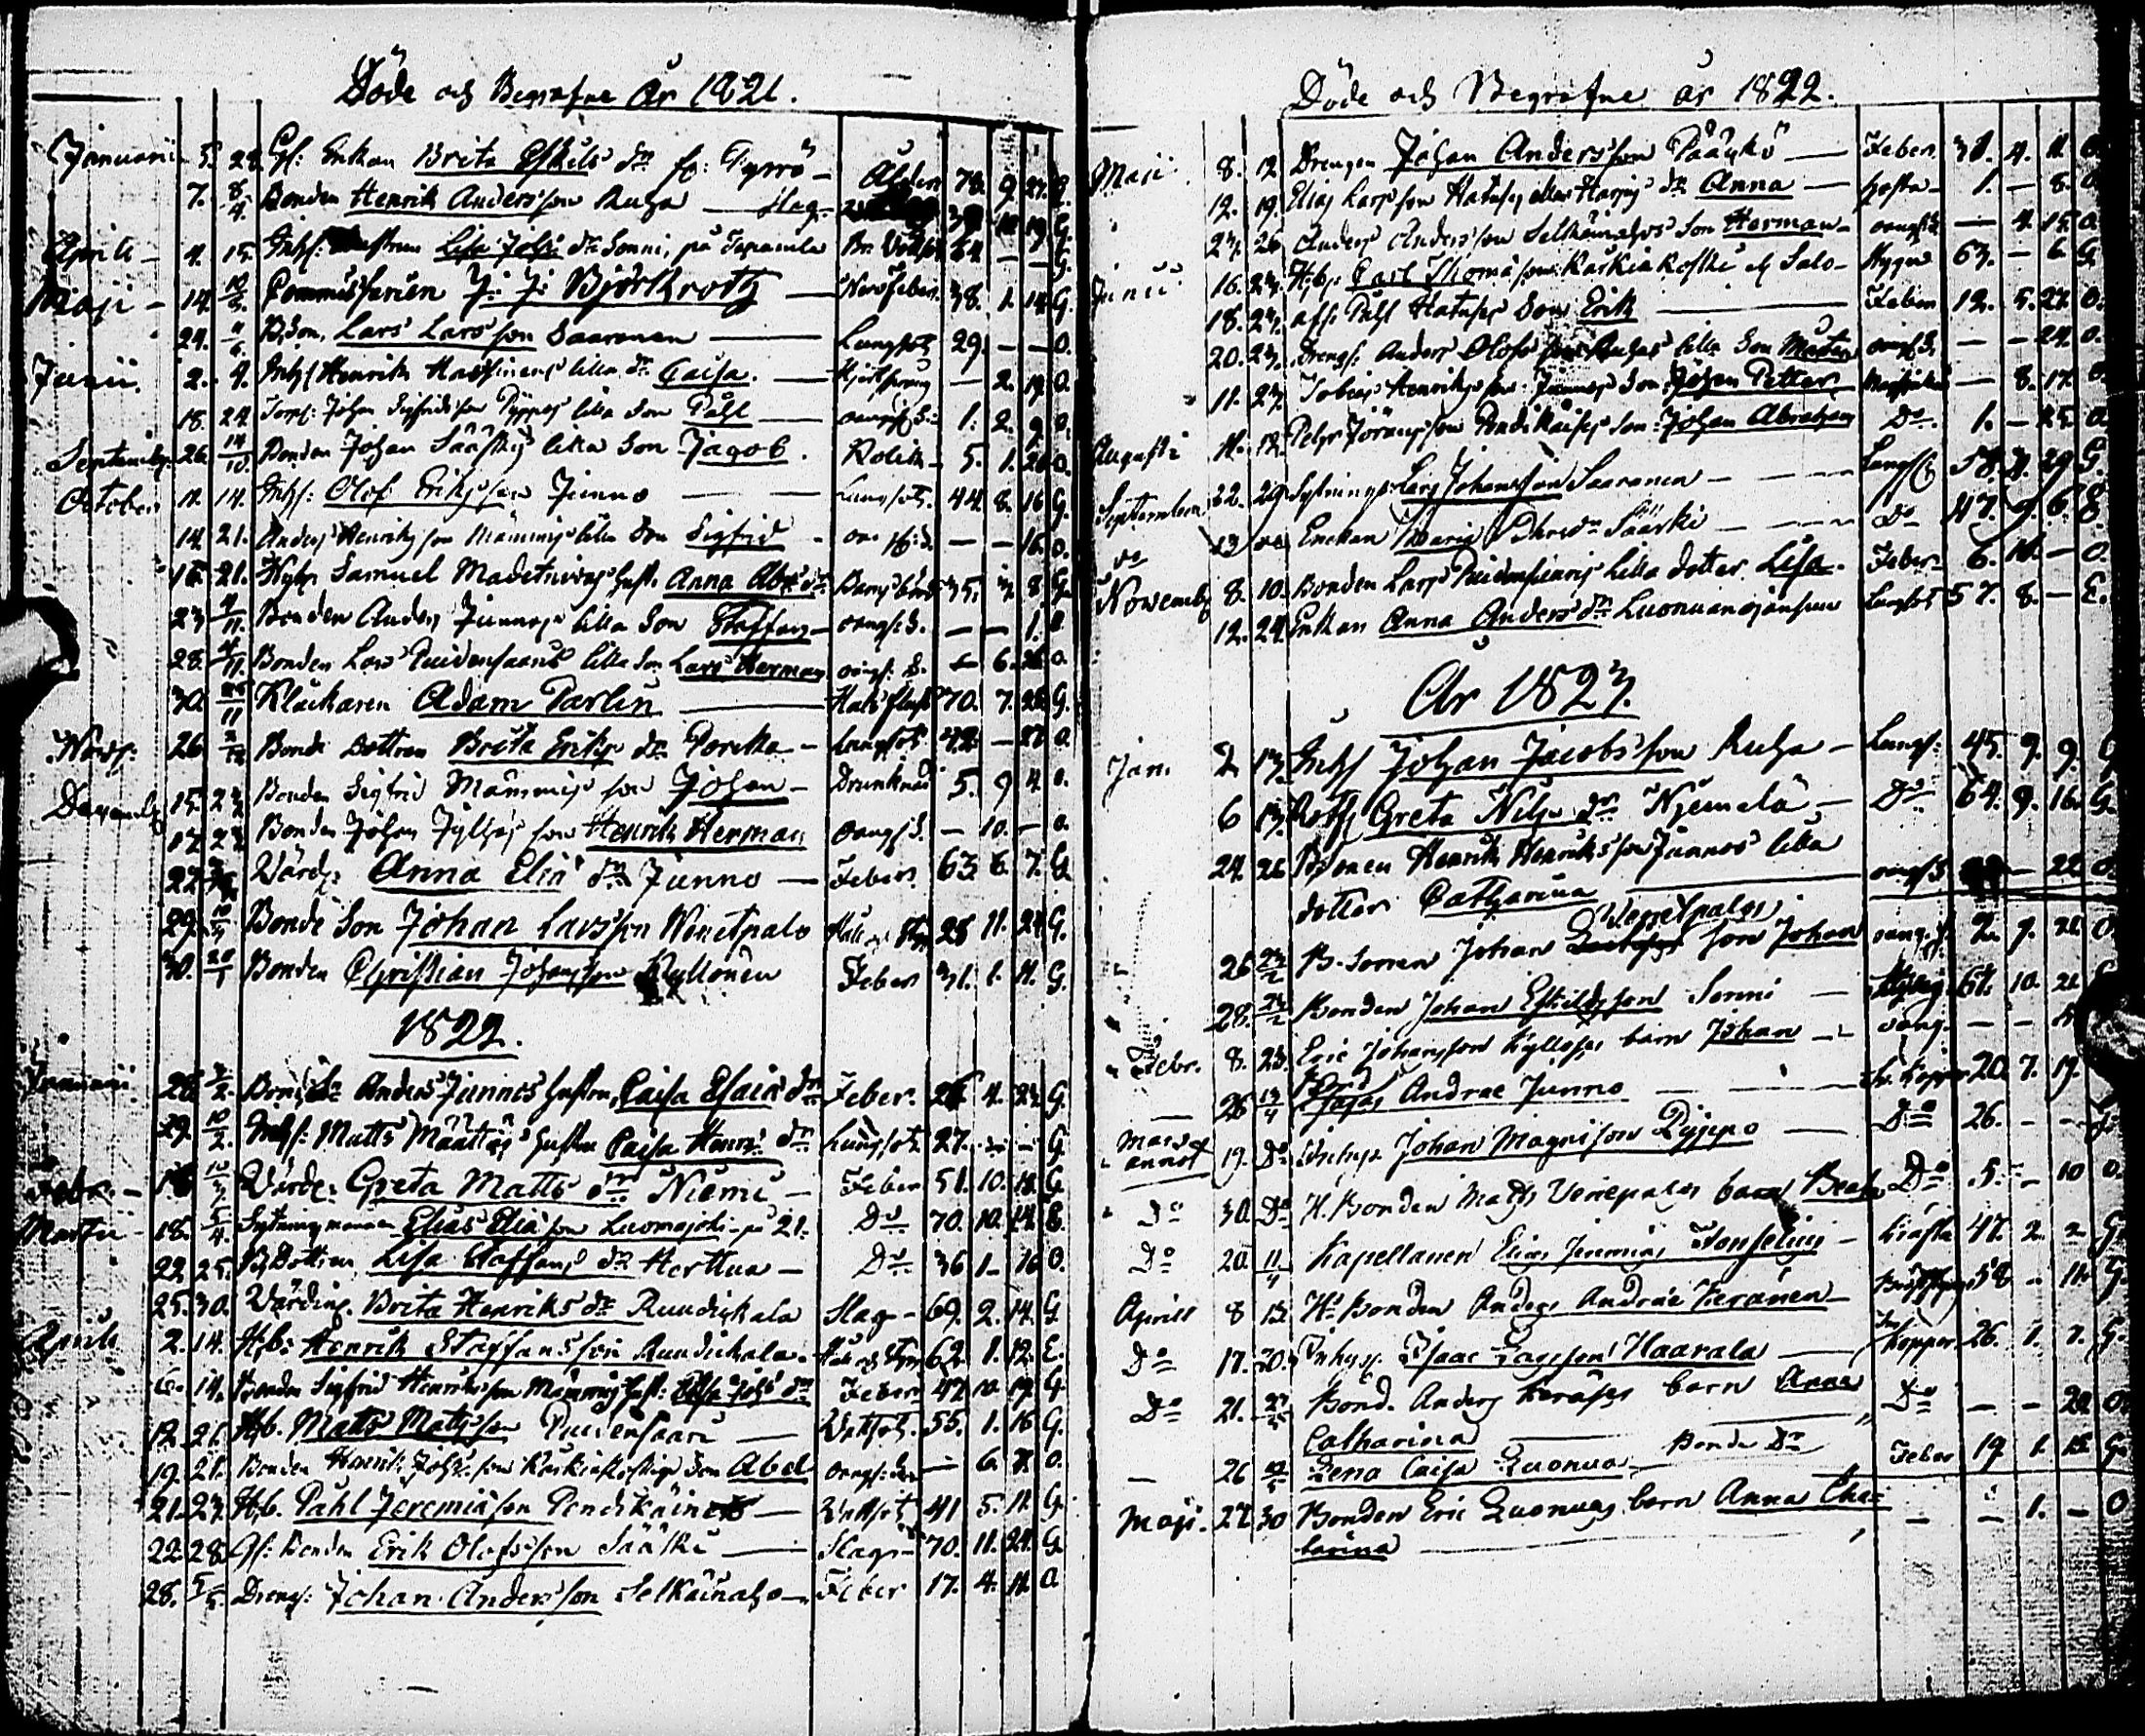 Döde och Begrafne År 1821.
Januarii 5. 28. Gl: Enkan Brita Eskils dr fr: Pyrrö – Ålder 78. 9. 27. G.
7. 8/4. Bonden Henrik Andersson Ruha — Slag
Aprill 4. 15. Inhs: Lisa Johs dr Sonni, på Br. Wattsot 64. — — G.
Maji 14. 10/5. Commissarien J: J: Björkroth — Nervfeber. 38. 1. 14. G.
29. B.Son. Lars Larsson Saaranen — Lungsot 29. — — O.
Junii. 2. 9. Inhs Henrik lilla dr Caisa. — — 2. 19. O.
18. 24. Torp: Johan Sigfridsson Pyppös lilla Son Påhl — oangif: S: 1. 2. 9. O.
Septembr. 26. 14/10. Bonden Johan Sääskis lilla Son Jacob. Kolik – 5. 1. 20. O.
October 11. 14. Inhs: Olof Eriksson Junno — — Lungsot. 44. 8. 16 G.
14. 21. Anders Henriksson Mämmis lilla Son Sigfrid – oangif: S. — — 16. O.
16. 21. Hyhs Samuel Madetniemis hust. Anna Abr: dr Barnsbörd 35. 7. 8 G.
23 4/11. Bonden Anders Junnos lilla Son Staffan – oangif: S. — — 1. O.
28. 4/11. Bonden Lars Puidensaaris lilla Son Lars Herman oangif: S. — 6. 26 O.
30. 25/11 Klåckaren Adam Parlin — Halsfluss 70. 7. 28. G.
Novr: 26 2/12 Bonde Dottren Brita Eriks dr Porkka – Lungsot 72. — 27 O.
Decemb 15. 23 Bonden Sigfrid Mämmis son Johan – Drunknad 5. 9 4. O.
17. 23 Bonden Johan Jylhäs son Henrik Herman oangif S. — 10. — O.
22. Värds: Anna Elia dr Junno — Feber. 63. 6. 7. G.
29. Bonde Son Johan Larsson Wenetpalo Håll och Styng 28 11. 24. G.
30. 20/1 Bonden Christian Johansson Kyllönen Feber 31. 1. 11. G.
1822.
Januarii 26 3/2. Bonde Anders Junnos hustru Caisa Esaias dr Feber. 26 4. 23. G.
29. 10/2. Inhs: Matts Määttäs hustru Caisa Henrs dr Lungsot. 27. — — G.
Febr. – 16 Värds: Greta Matts dr Niemi – Feber 51. 10. 18. G.
Martii 18. 5/4. Sytningsmannen Elias Eliasson Luomajoki – på 21. Do 70. 10. 14. E.
22 25. B.Dottren Lisa Staffans dr Herttua – Do 36 1 – 16 O.
25. 30. Värdin: Brita Henriks dr Rundikala Slag – 69. 2. 14. G
Aprill 2. 14. H.b: Henrik Staffansson Rundikala. Håll och Styn 62. 1. 12. E.
6. 14. Bonden Sigfrid Henriksson Mämmis hust: Elisa Johs dr Feber 47 10. 19. G.
12. 21. H.b. Matts Matsson Puidensaari — Wattsot. 55. 1. 16 G.
19. 21. Bonden Henrik Johs: son Karkiakoskis Son Abel oangif: — 6. 7. O.
21. 27. H.b. Påhl Jeremiasson Pendikäinen — Wattsot 41 5. 11. G.
22. 28. Gl: Bonden Erik Olofsson Sääski — Slag – 70. 11. 24. G.
28. 5/5. Dreng: Johan Andersson Selkäinaho – Feber 17. 4. 11. O
Döde och Begrafne år 1822.
Maji 8. 12 Drengen Johan Andersson Pääkkö — Feber. 31. 4. 11. O.
12. 19. Elias Larsson Hatuses dr Anna — hosta – 1. — 8. O.
23. 26 Anders Andersson Selkäinahos Son Herman – oangif: S. — 4. 15. O.
Junii 16. 23. H.b: Carl Thomasson Karkiakoski och Salo – Hygne 63. — 6 G.
18. 23. afl: Påhl Hatuses Son Erik — Feber 12. 5. 27. O.
20. 23. Drengs: Anders Olofs son lilla Son Matts oangif S. — — 24. O.
11. 23. Tobias Henriksson Junnos Son Johan Petter — 8. 17. O.
Augusti 11. 12. Petter Jöransson Pendikäises Son: Johan Abraham Do. 1. — 25. O.
September 22. 29. Sytnings: Lars Johansson Saaranen — Lungsot 58. 7. 29 G.
do 13 do Enckan Maria Sääski — Do 47. 9. 6. E.
Novemb 8. 10. Bonden Lars Puidensuaris lilla dotter. Lisa. Feber. 6. 10. — O.
12. 24. Enkan Anna Anders dr Luonuanojansuu Lungsot 57. 8. — E.
År 1823.
Jan. 2 13. Inhs Johan Jacobsson Ruha – Lungs: 45. 9. 9. G
6 13. Greta Nils dr Njemelä – Do 64. 9. 16. G.
24. 26 B.sonen Henrik Henriksson Junnos lilla
dotter Catharina oangif S — 22 O.
26 23/2 B.Sonen Johan Wenetpalos son Johan oang. S. 2. 9. 21. O.
28. 23/2 Bonden Johan Eskildsson Sonni — Styng. 61. 10. 21
Febr. 8. 23. Eric Johansson Kyllöses barn Johan — oang. — —
— 26 13/4 Andrae Junno — — Koppor 20. 7. 17.
Mars annot 19. Do Inhys. Johan Magnisson Pyppo — Do 26. – – G.
Do 30. Do H.Bonden Matts Venepalos barn Beata Do 5. – 10 O.
Do 20. 11/4 Kapellanen Elias Jeremias Jonselius – Kräfta 47. 2. 2 G.
Aprill 8 13. Hs Bonden Anders Andrae Keränen – 58. – 11. G.
Do 17. 20. Inhys. Isaac Larsson Haarala — Koppor 26. 1. 7. G.
Do 21. 27/4 Bond. Anders Keräses barn Anna Do — — 20. O.
Catharina
— 26 Lena Caisa Luonua Bonde Dr Feber 19 1. 18. G.
Maji. 27. 30 Bonden Eric Luonuas barn Anna Cha= — — 1. — O
tarina